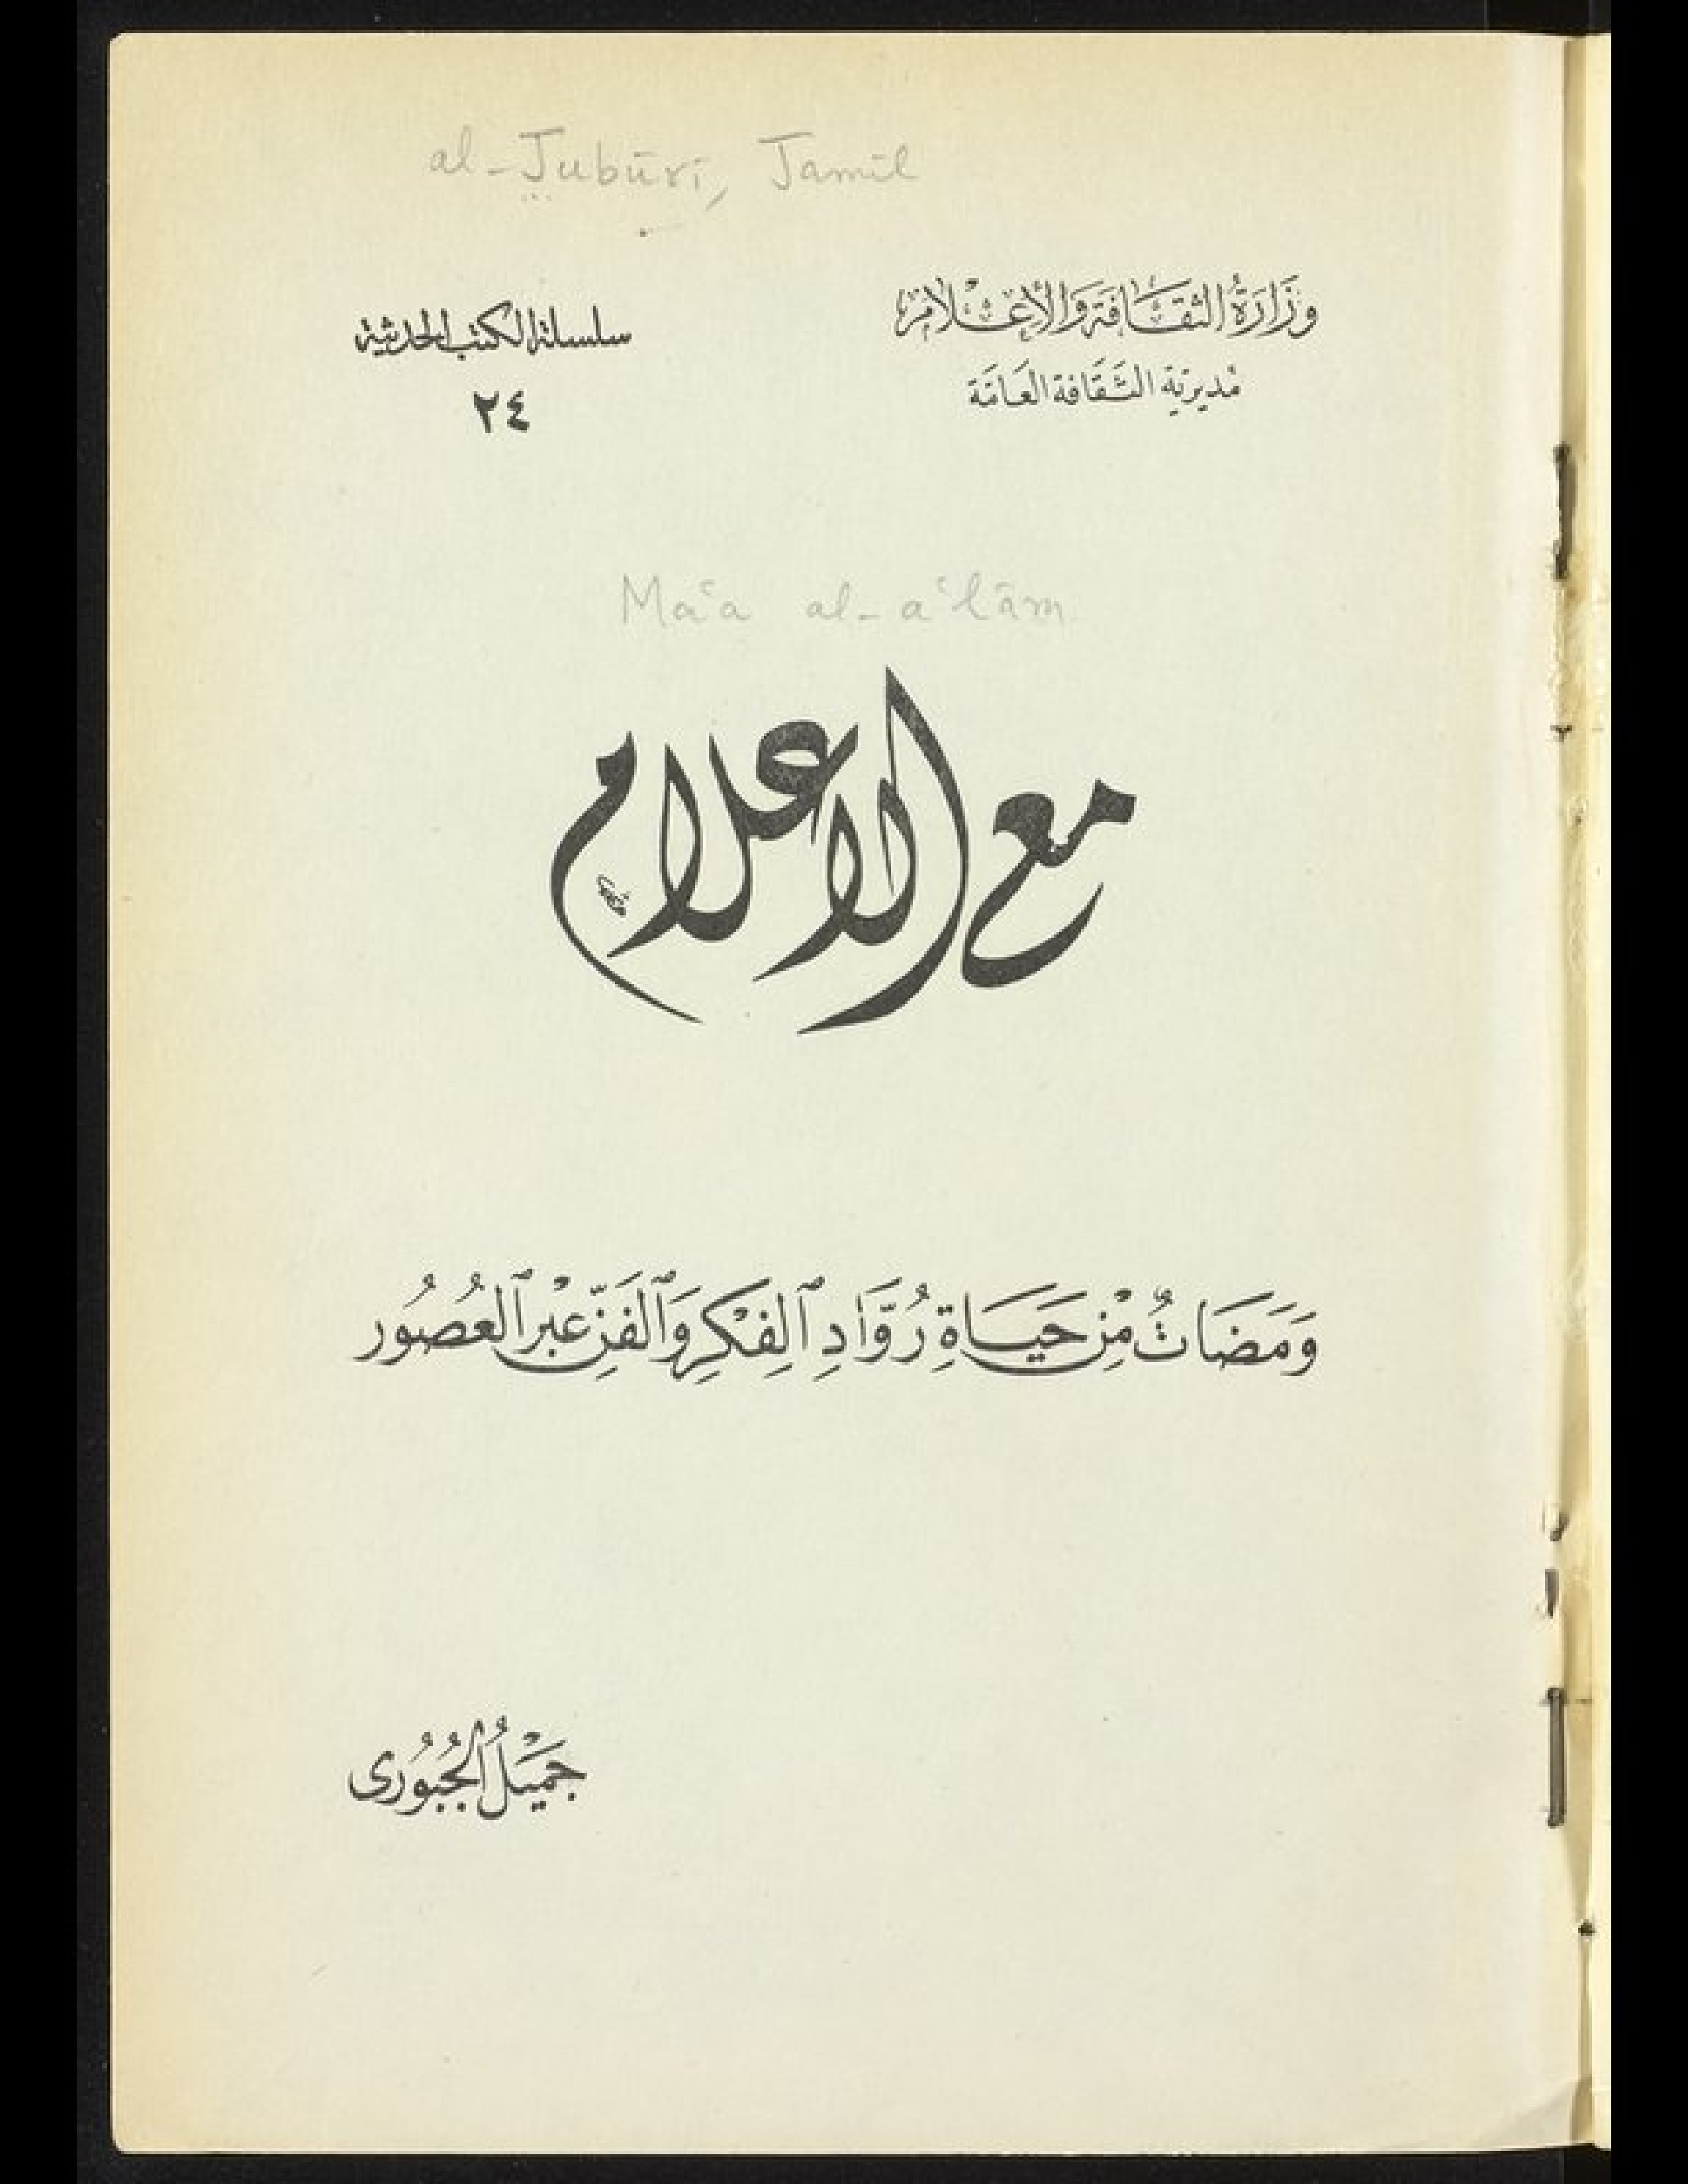 al-Jubūrī, Jamīl
وَزَارَةُ الثقَافَة وَالأِعْلام
مُديريَة الثَّقَافة العَامَّة
سلسلة الكتب الحديثة
٢٤
Ma‘a al-a‘lām
مع الاعلام
وَمَضَاتٌ مْنِ حَيَاةِ رُوَّادِ ٱلفِكْرِ وَٱلفَنِّ عبْر ٱلعُصُور
جَميْلُ الجُبُورى